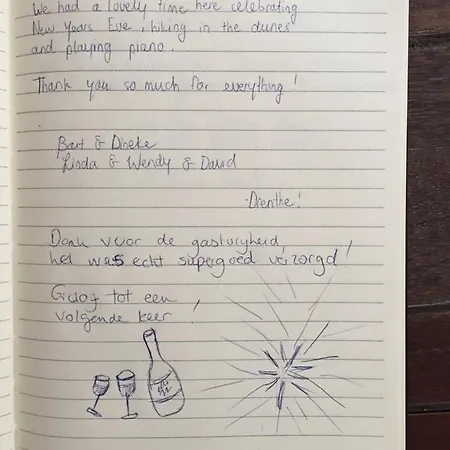 We had a lovely time here celebrating
New Years Eve, hiking in the dunes
and playing piano.
Thank you so much for everything!
Bart & Dineke
Linda & Wendy & David
- Drenthe!
Dank voor de gastvryheid,
het was echt supergoed verzorgd!
Graag tot een
volgende keer!